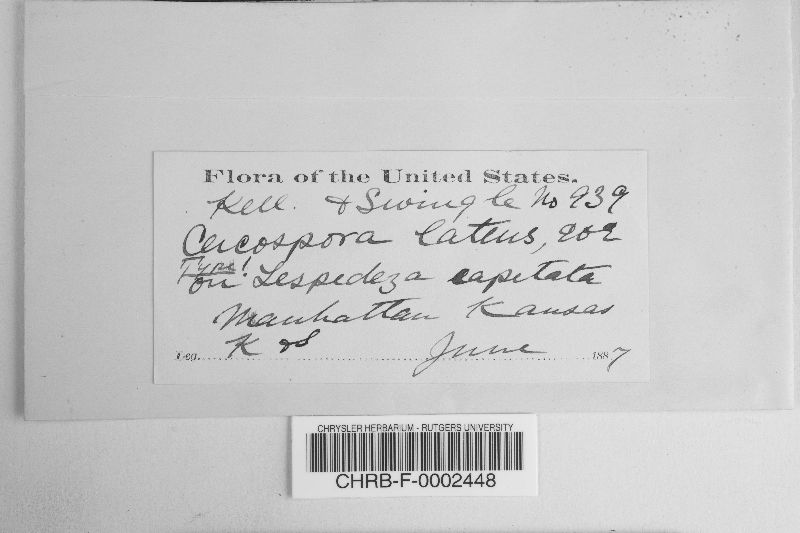 Flora of the United States.
Kell. & Swingle No 939
Cercospora latens,
Type!
on Lespedeza capitata
Manhattan Kansas
Leg. K & S June 1887
CHRYSLER HERBARIUM - RUTGERS UNIVERSITY
CHRB-F-0002448